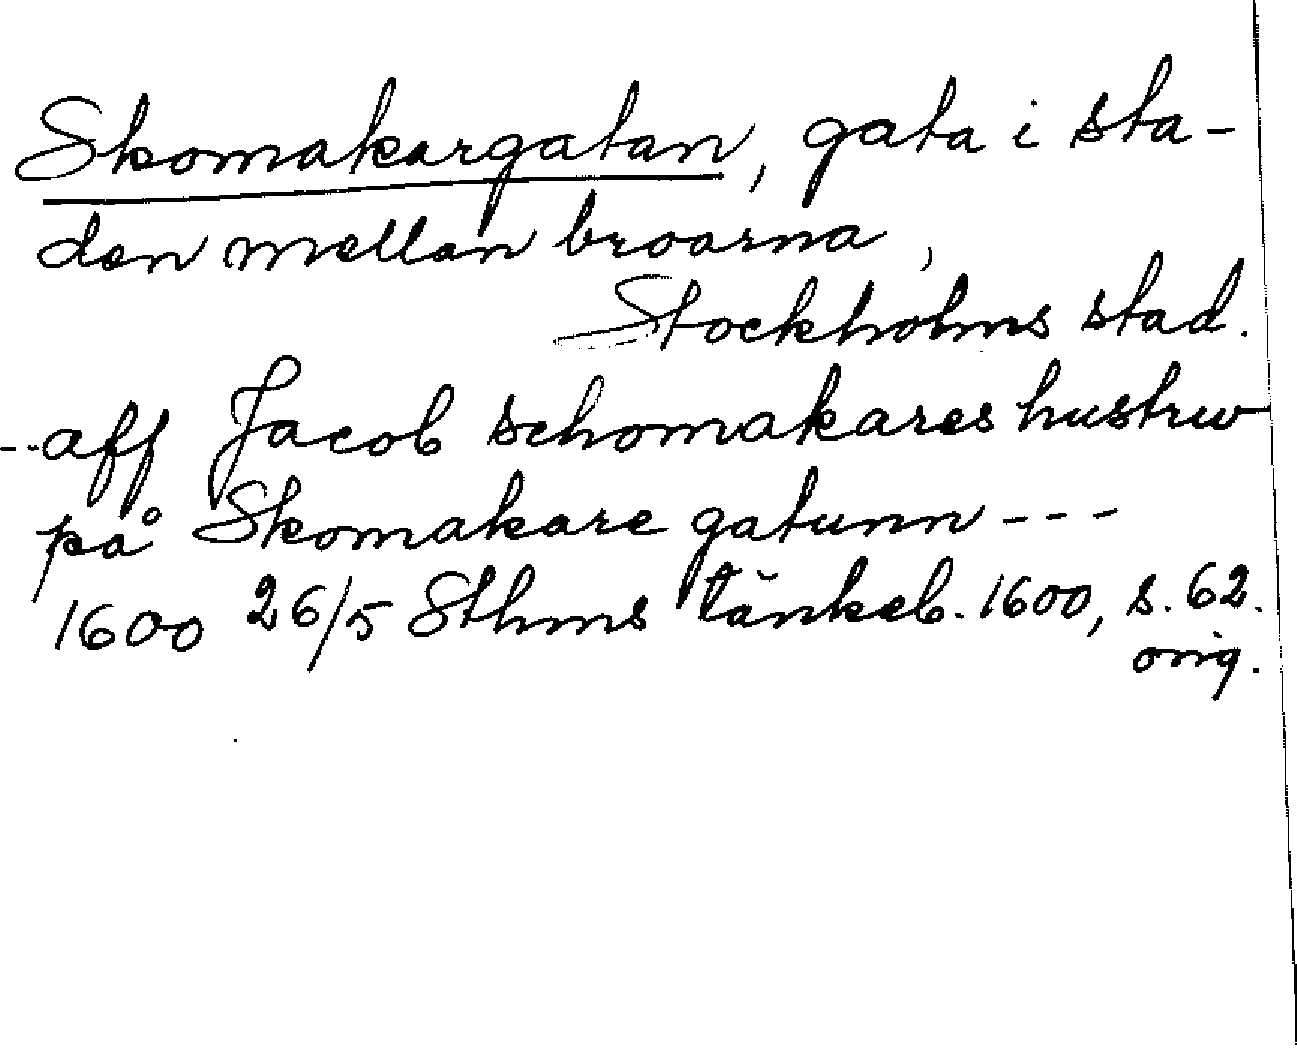 Skomakargatan, gata i sta-
den mellan broarna,
Stockholms stad.
--aff Jacob schomakares hustrw
på Skomakare gatunn ---
1600 26/5 Sthms tänkeb. 1600, s. 62.
orig.